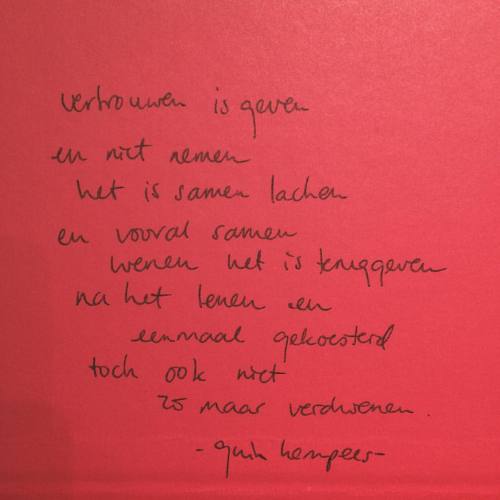 vertrouwen is geven
en niet nemen
het is samen lachen
en vooral samen
wenen het is teruggeven
na het lenen en
eenmaal gekoesterd
toch ook niet
zo maar verdwenen.